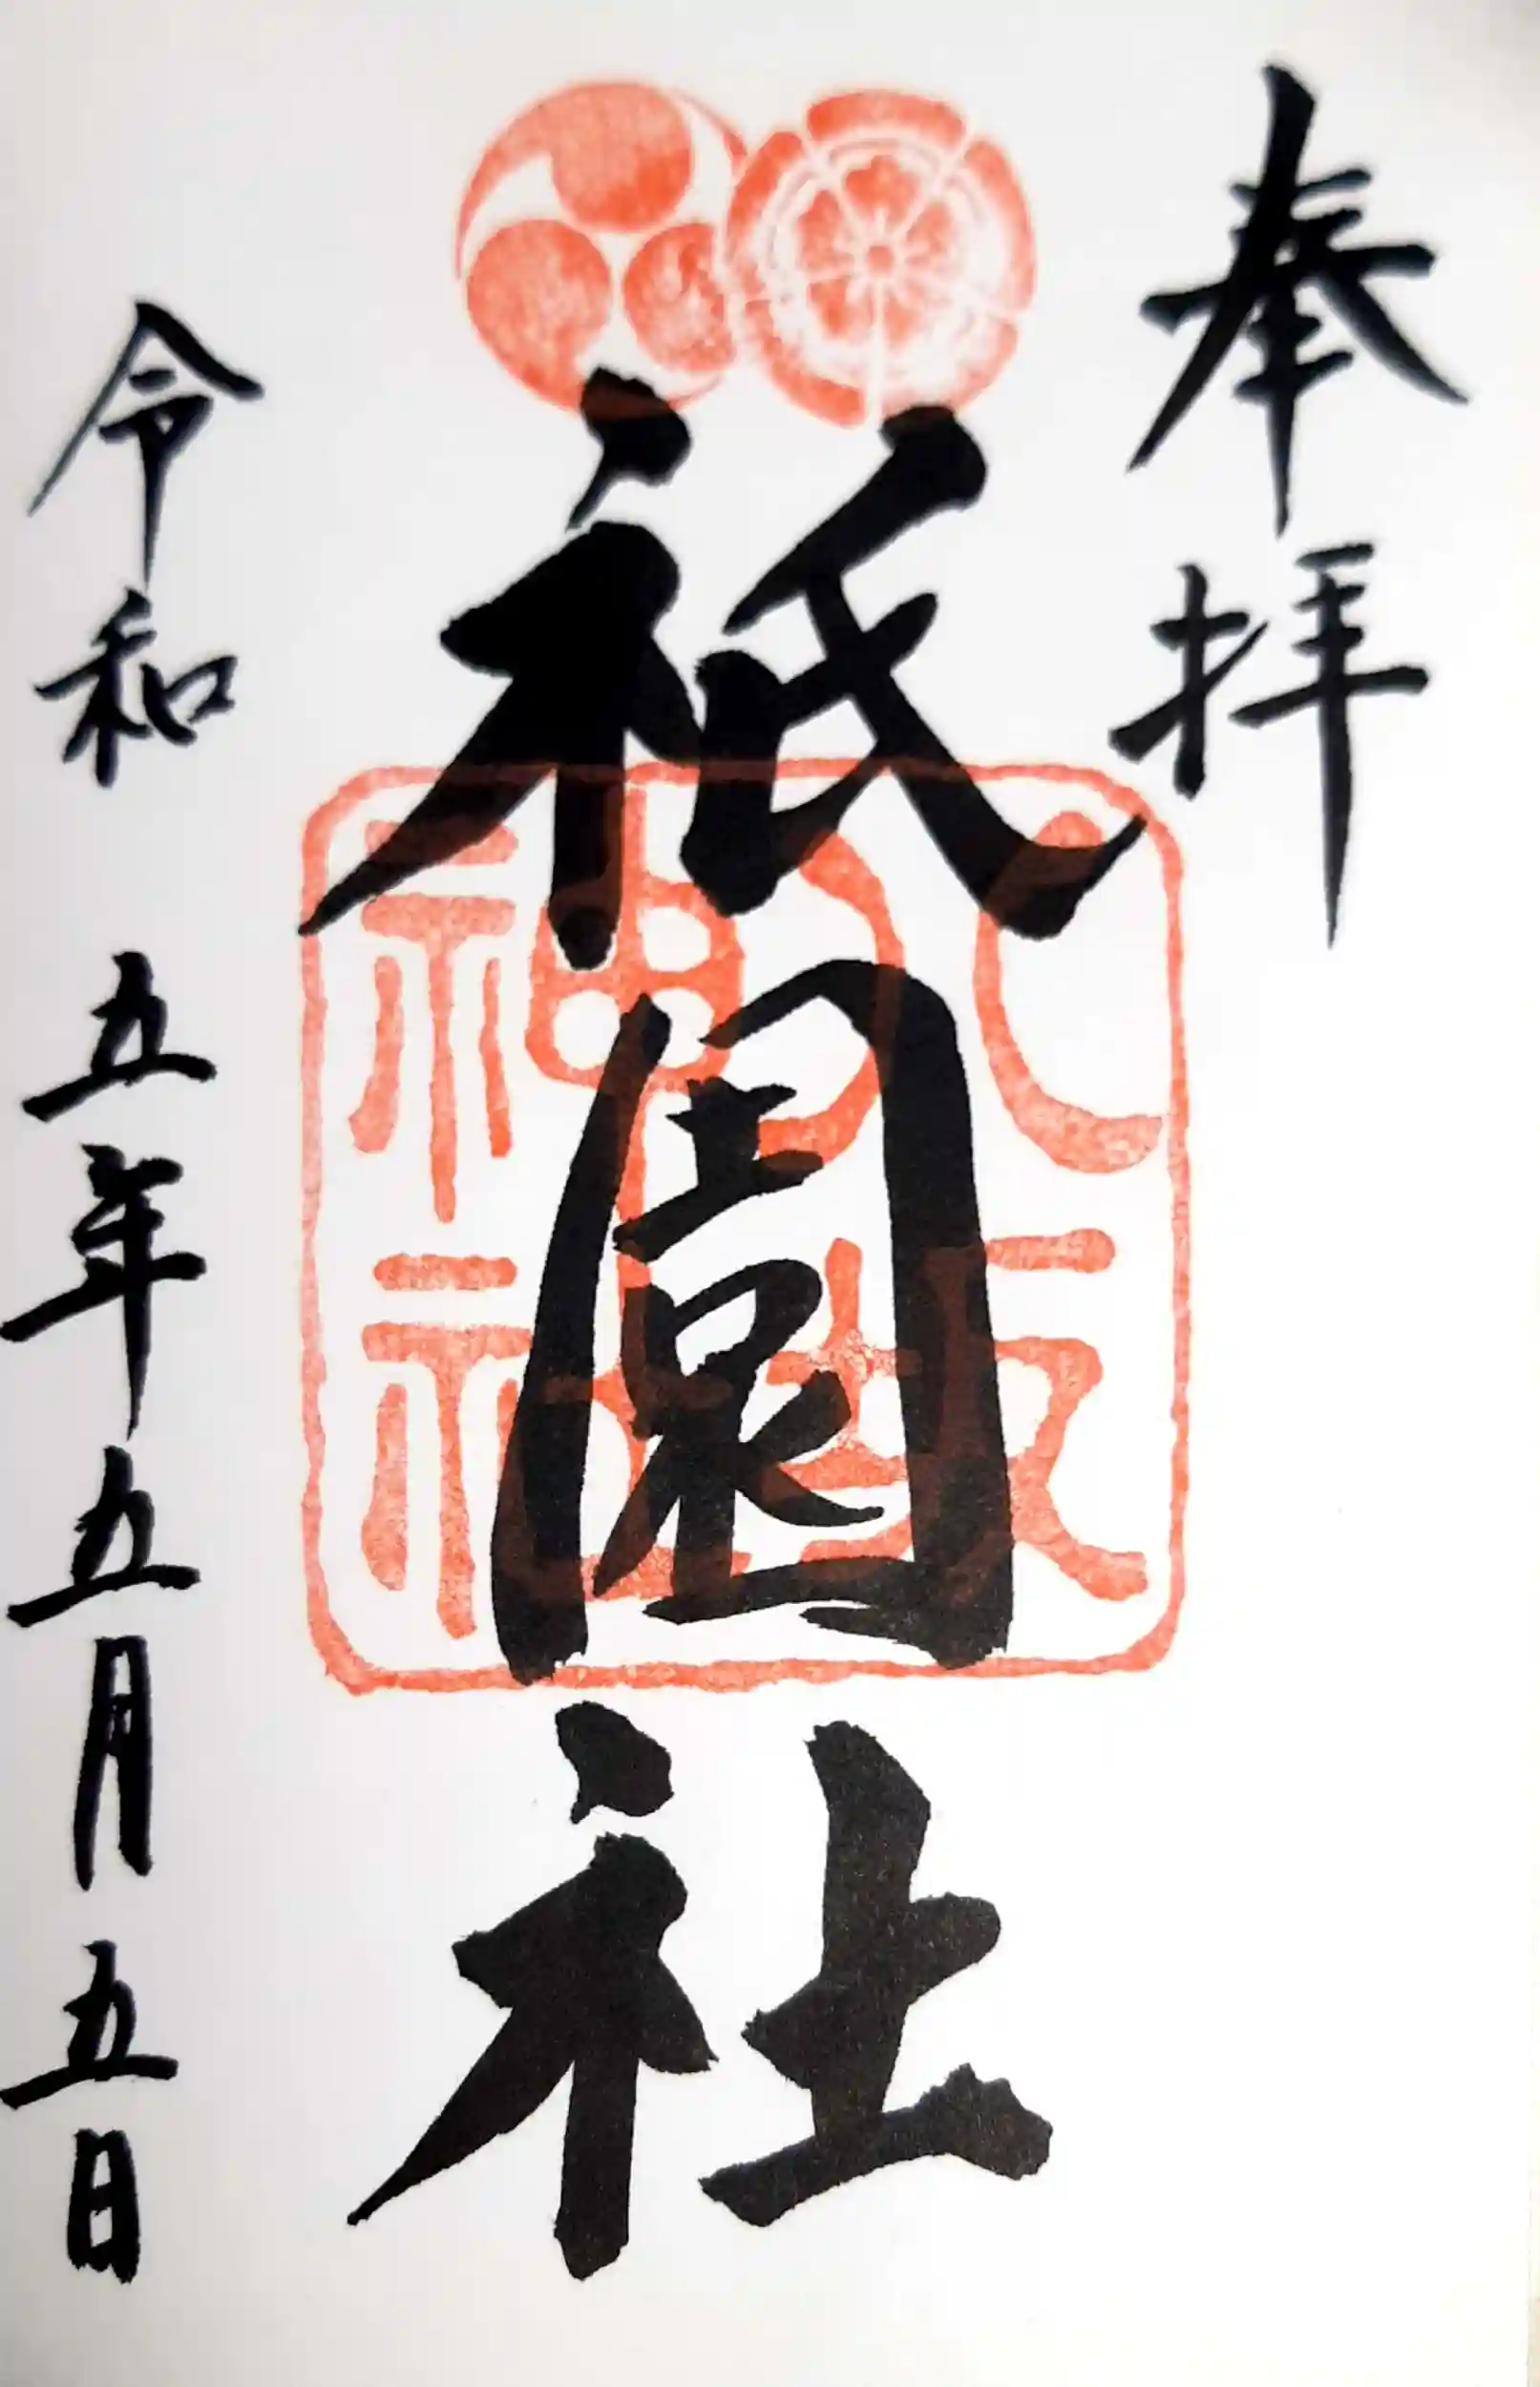 奉拝
祇園社
八坂
神社
令和五年五月五日